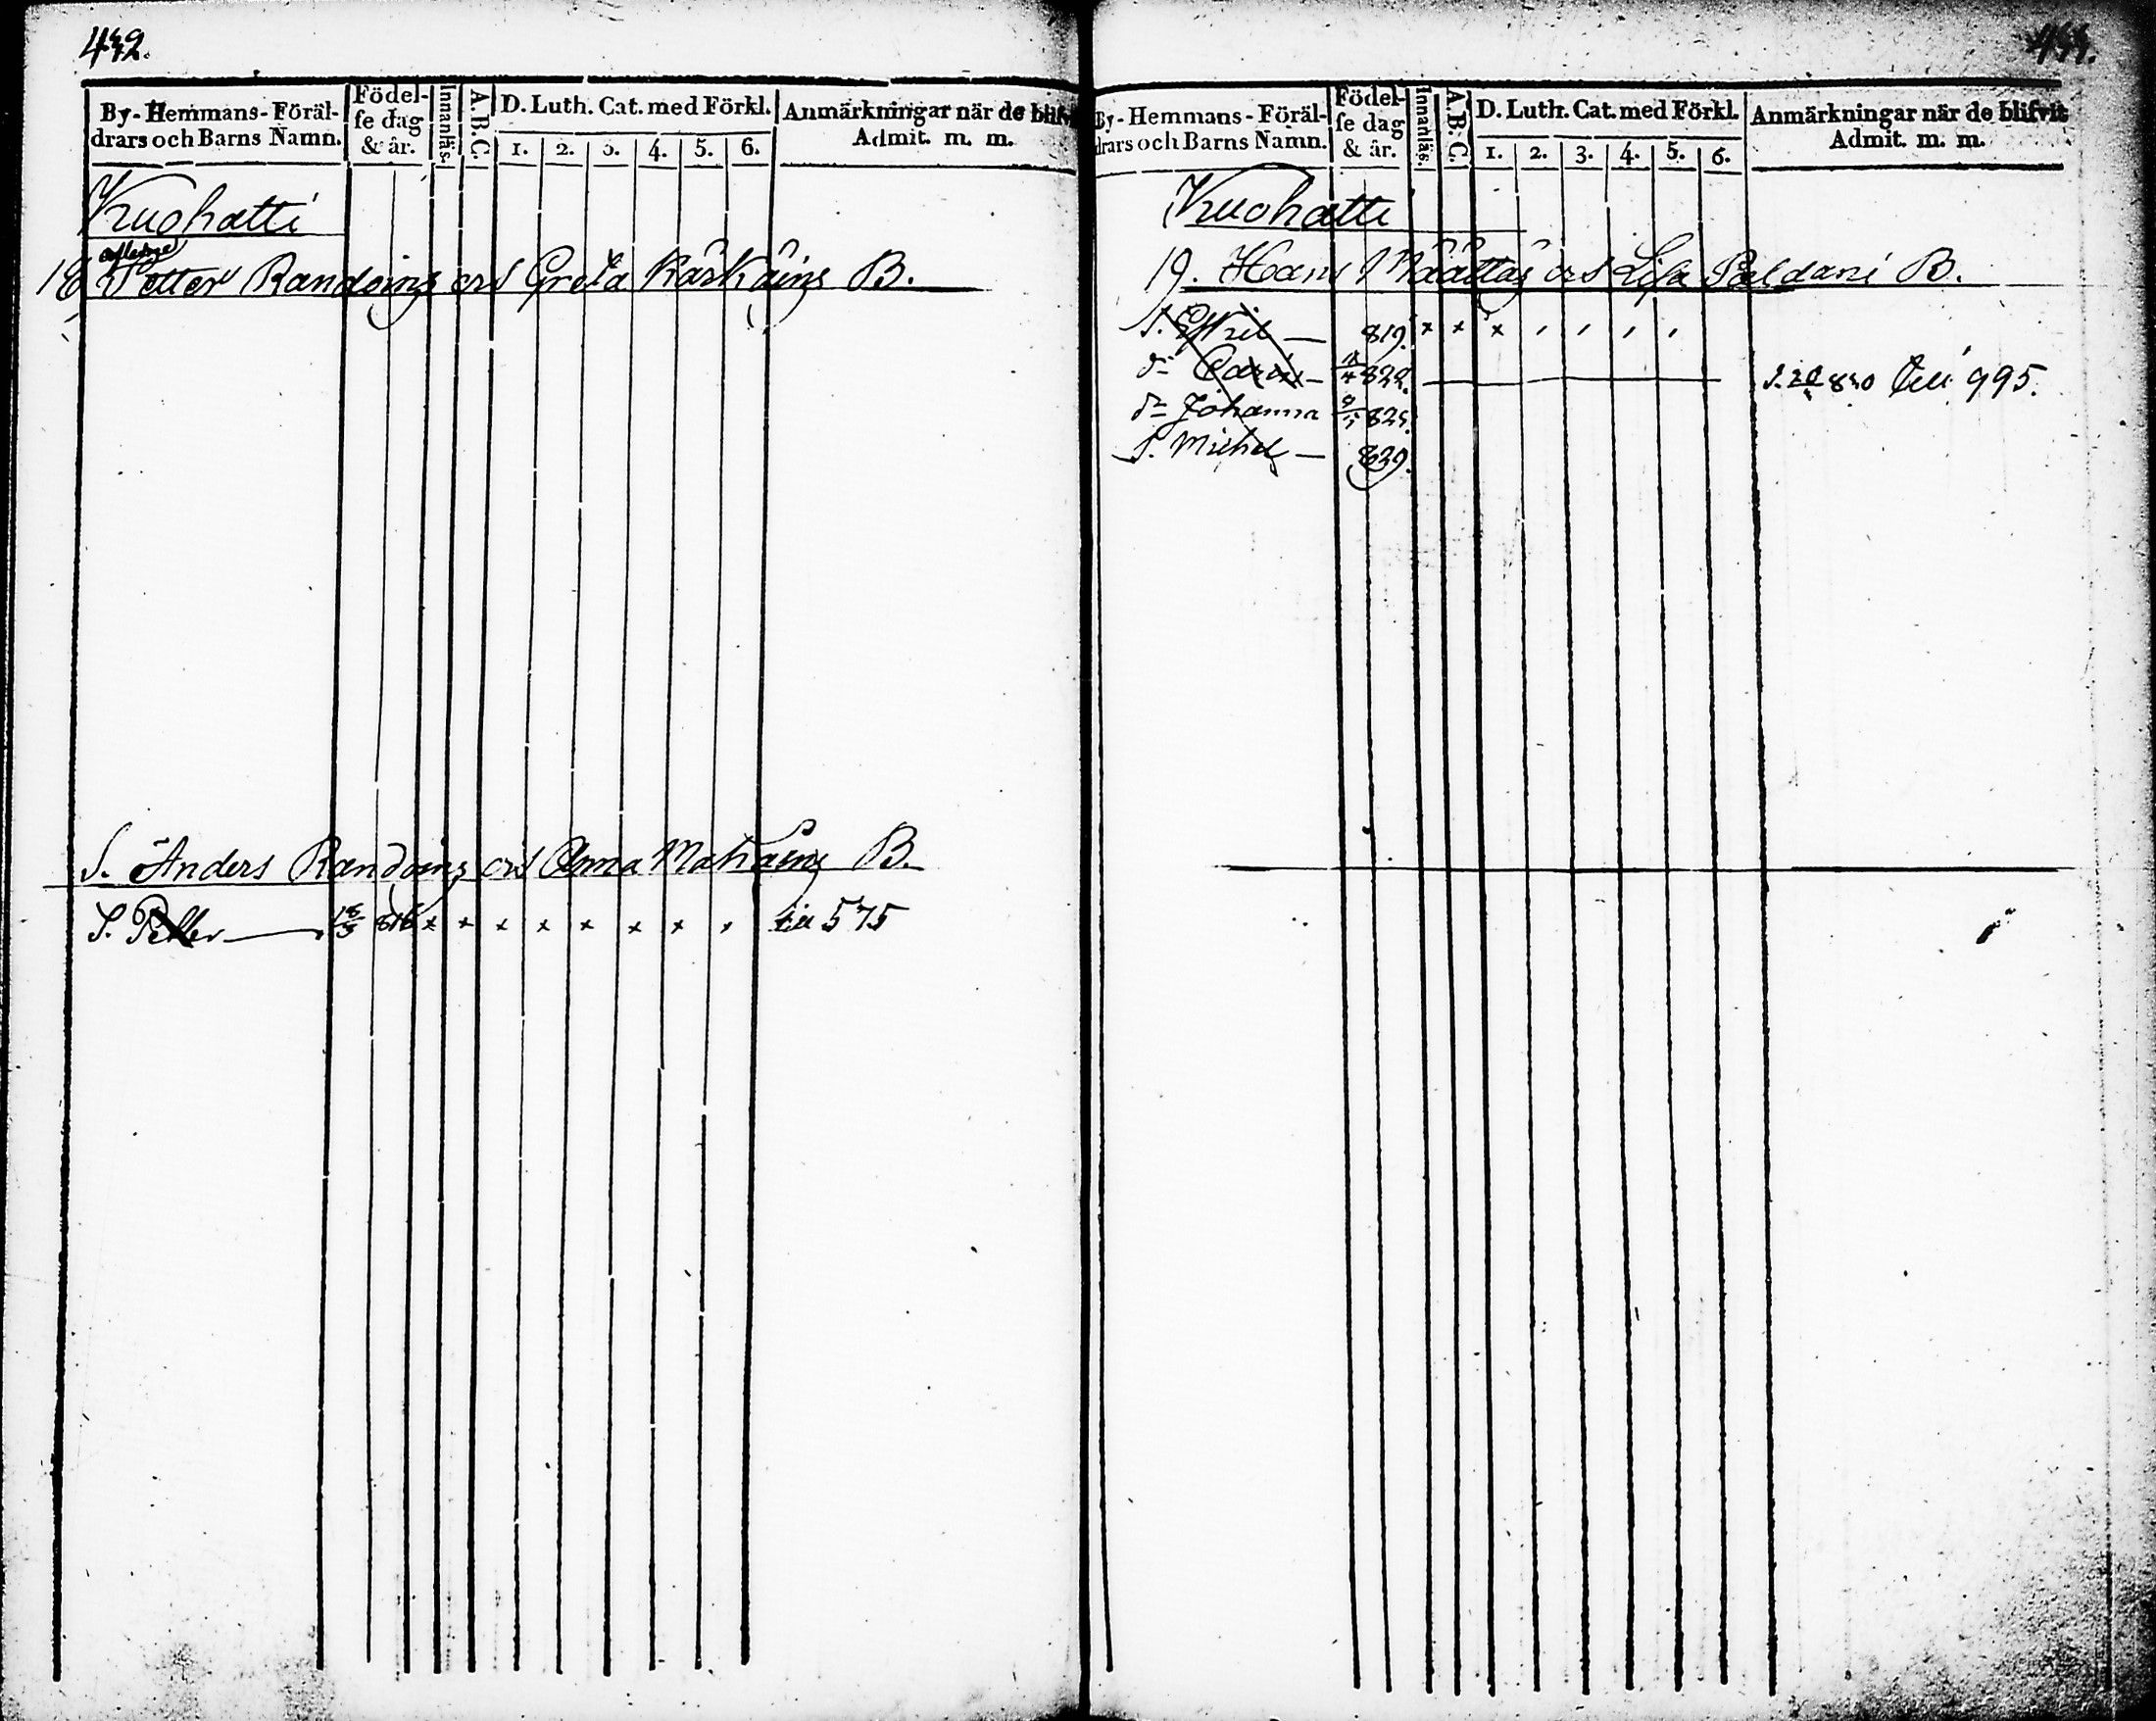 432.
By-Hemmans-Föräl-
drars och Barns Namn.
Födel-
se dag
& år.
Innanläs.
A.B.C.
D. Luth. Cat. med Förkl.
1. 2. 3. 4. 5. 6.
Anmärkningar när de blifvit
Admit. m. m.
Kuohatti
afledne
18 Petter Randoinz och Greta Kärkäinz B.
S. Anders Randoinz och Anna Mahainz B.
S. Petter — 18/3 816 x x x x x x x x till 575
By-Hemmans-Föräl-
drars och Barns Namn.
Födel-
se dag
& år.
Innanläs.
A.B.C.
D. Luth. Cat. med Förkl.
1. 2. 3. 4. 5. 6.
Anmärkningar när de blifvit
Admit. m. m.
Kuohatti
19. Hans Määttäz och Lisa Paldani B.
S. Eskil — 819. x x x
dr Carin — 822. — 830 995.
dr Johanna
S. Michel — 839.